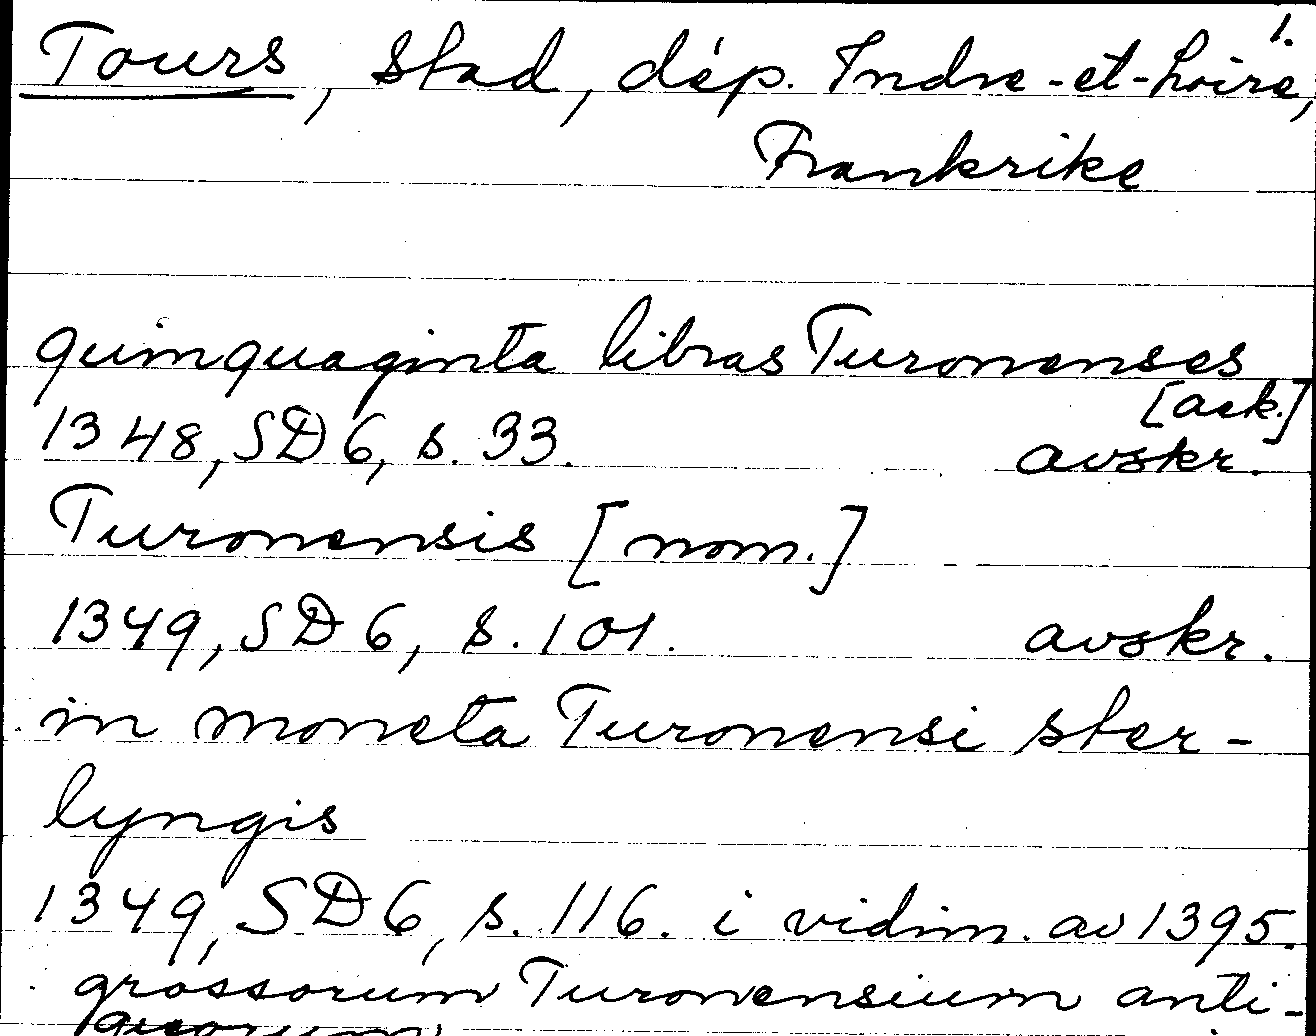 1.
Tours, stad, dép. Indre-et-Loire,
Frankrike
quinquaginta libras Turonenses
[ack.]
1348, SD 6, s. 33. avskr.
Turonensis [nom.]
1349, SD 6, s. 101. avskr.
in moneta Turonensi ster-
lyngis
1349, SD 6, s. 116. i vidim. av 1395.
grossorum Turonensium anti-
quorum